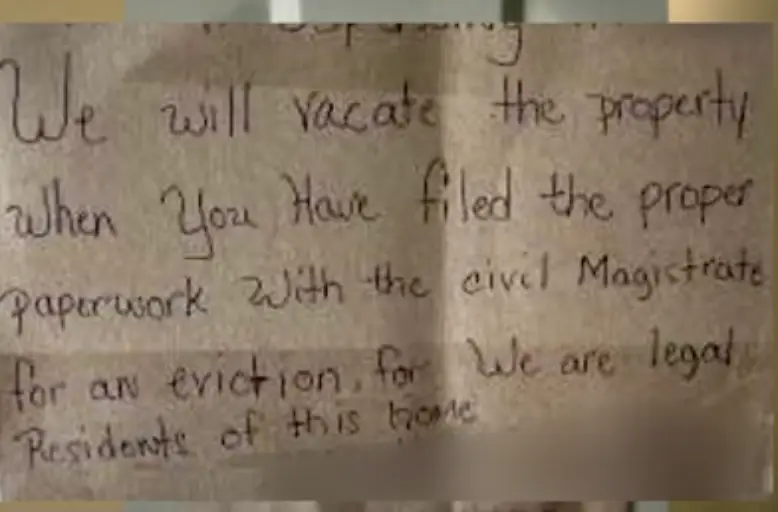 We will vacate the property
when You Have filed the proper
paperwork With the civil Magistrate
for an eviction, for We are legal
Residents of this home